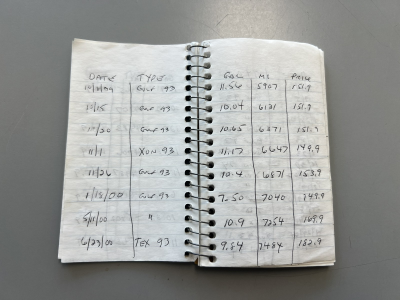 DATE TYPE GAL MI PRICE
GULF 93 11.56 5907 151.9
10/15 GULF 93 10.04 6121 151.9
10/20 GULF 93 10.65 6371 151.9
11/1 XON 93 11.17 6647 149.9
11/26 GULF 93 10.4 6871 153.9
1/18/00 GULF 93 7.50 7040 149.9
5/11/00 " 10.9 7254 169.9
6/23/00 TEX 93 9.84 7484 182.9